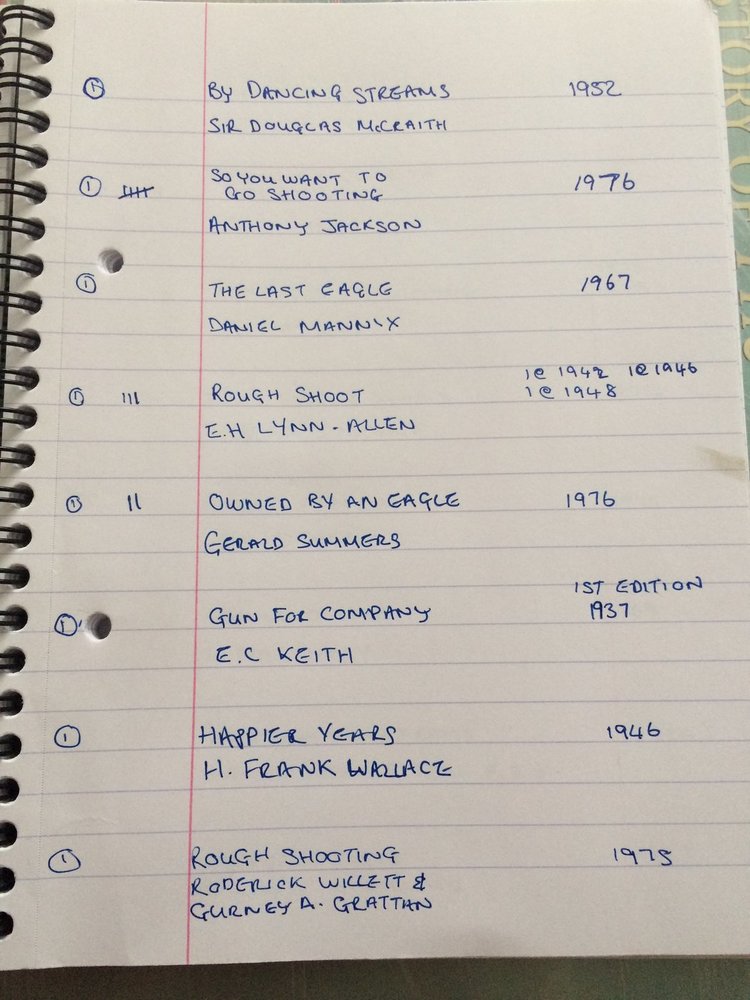 ① BY DANCING STREAMS 1952
SIR DOUGLAS McCRAITH
① SO YOU WANT TO 1976
GO SHOOTING
ANTHONY JACKSON
① THE LAST EAGLE 1967
DANIEL MANNIX
1@ 1942 1@ 1946
① III ROUGH SHOOT 1@ 1948
E.H LYNN-ALLEN
① II OWNED BY AN EAGLE 1976
GERALD SUMMERS
1ST EDITION
① GUN FOR COMPANY 1937
E.C KEITH
① HAPPIER YEARS 1946
H. FRANK WALLACE
① ROUGH SHOOTING 1975
RODERICK WILLETT &
GURNEY A. GRATTAN